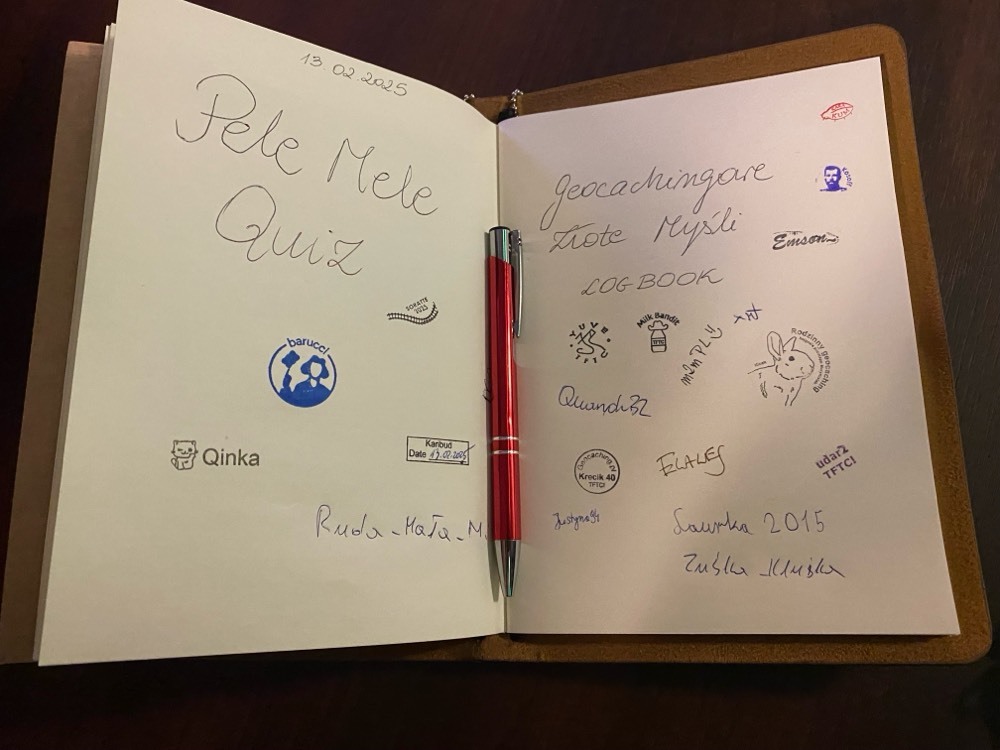 13 02.2025
Pele Mele
Quiz
SOKATTE
2025
barucci
Qinka
Karibud
Date 13.02.2025
Ruda_Mała_M.
Geocachingare
Złote Myśli
LOGBOOK
Emson
Milk Bandit
TFTC
m2m PL
Rodzinny geocaching
Quand32
Geocaching.pl
Krecik 40
TFTC!
ELALEJ
udar2
TFTC!
Laurka 2015
Zuśka_Kluska